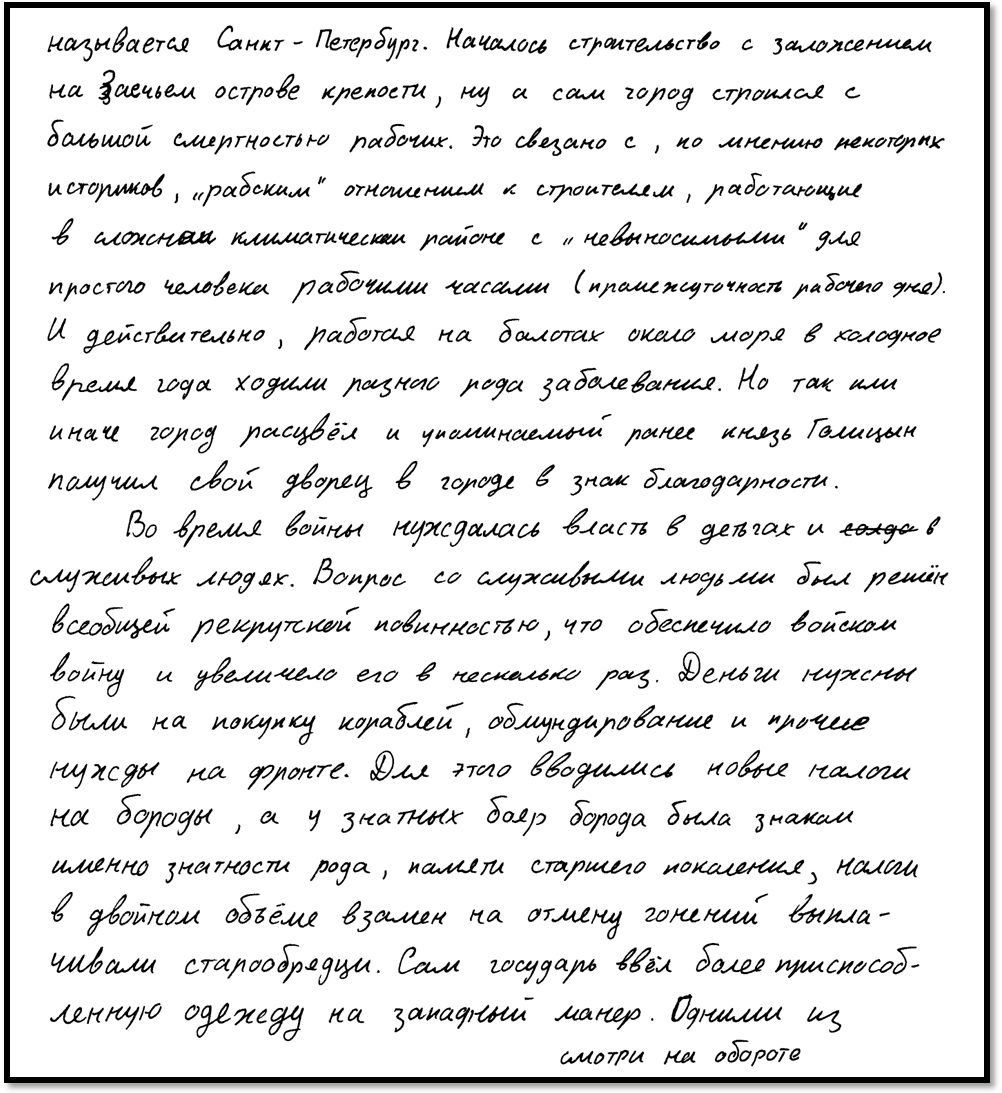 называется Санкт - Петербург. Началось строительство с заложением
на Заечьем острове крепости, ну а сам город строился с
большой смертностью рабочих. Это связано с, по мнению некоторых
историков, „рабским" отношением к строителем, работающие
в сложном климатическом районе с „невыносимыми" для
простого человека рабочими часами (промежуточность рабочего дня).
И действительно, работая на болотах около моря в холодное
время года ходили разного рода заболевания. Но так или
иначе город расцвёл и упоминаемый ранее князь Голицын
получил свой дворец в городе в знак благодарности.
Во время войны нуждалась власть в деньгах и солда в
служивых людях. Вопрос со служивыми людьми был решён
всеобщей рекрутской повинностью, что обеспечило войском
войну и увеличело его в несколько раз. Деньги нужны
были на покупку кораблей, обмундирование и прочие
нужды на фронте. Для этого вводились новые налоги
на бороды, а у знатных бояр борода была знаком
именно знатности рода, памяти старшего поколения, налоги
в двойном объёме взамен на отмену гонений выпла-
чивали старообрядци. Сам государь ввёл более приспособ-
ленную одежеду на западный манер. Одними из
смотри на обороте